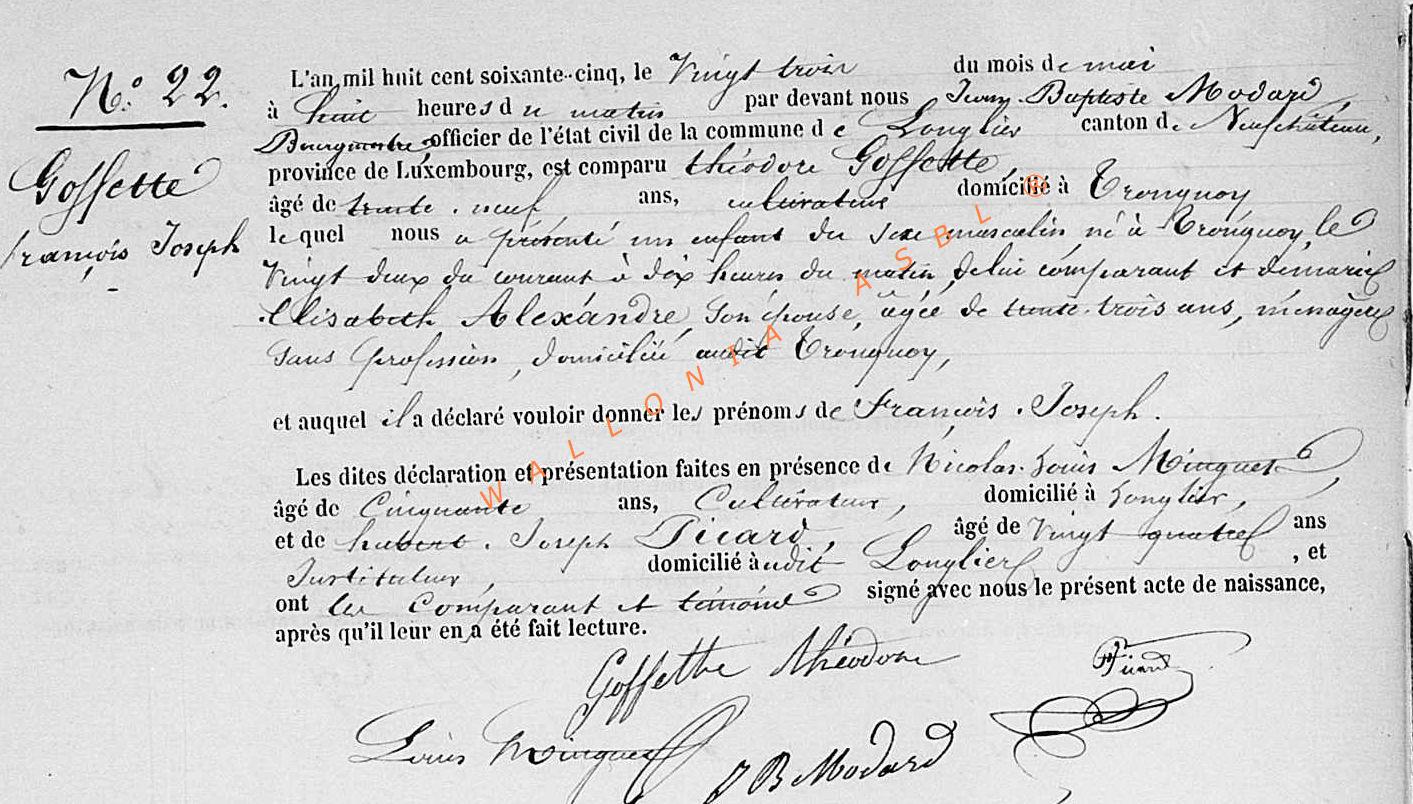 N.° 22.
Goffette
François Joseph
L'an mil huit cent soixante-cinq, le Vingt trois du mois de mai
à huit heures du matin par devant nous Jean-Baptiste Modard,
Bourgmestre, officier de l'état civil de la commune de Longlier canton de Neufchâteau,
province de Luxembourg, est comparu théodore Goffette,
âgé de trente-neuf ans, cultivateur domicilié à Tronquoy
lequel nous a présenté un enfant du sexe masculin, né à Tronquoy, le
Vingt deux du courant à dix heures du matin, de lui comparant et de marie
Elisabeth Alexandre, son épouse, âgée de trente-trois ans, ménagère
Sans profession, domiciliée audit Tronquoy,
et auquel il a déclaré vouloir donner les prénoms de François-Joseph.
Les dites déclaration et présentation faites en présence de Nicolas-Louis Minguet
âgé de Cinquante ans, Cultivateur, domicilié à Longlier,
et de hubert-Joseph Picard, âgé de Vingt quatre ans
Instituteur, domicilié audit Longlier, et
ont les Comparant et témoins signé avec nous le présent acte de naissance,
après qu'il leur en a été fait lecture.
Goffette théodore
Picard
Louis Minguet
J B Modard
WALLONIA ASBL ®